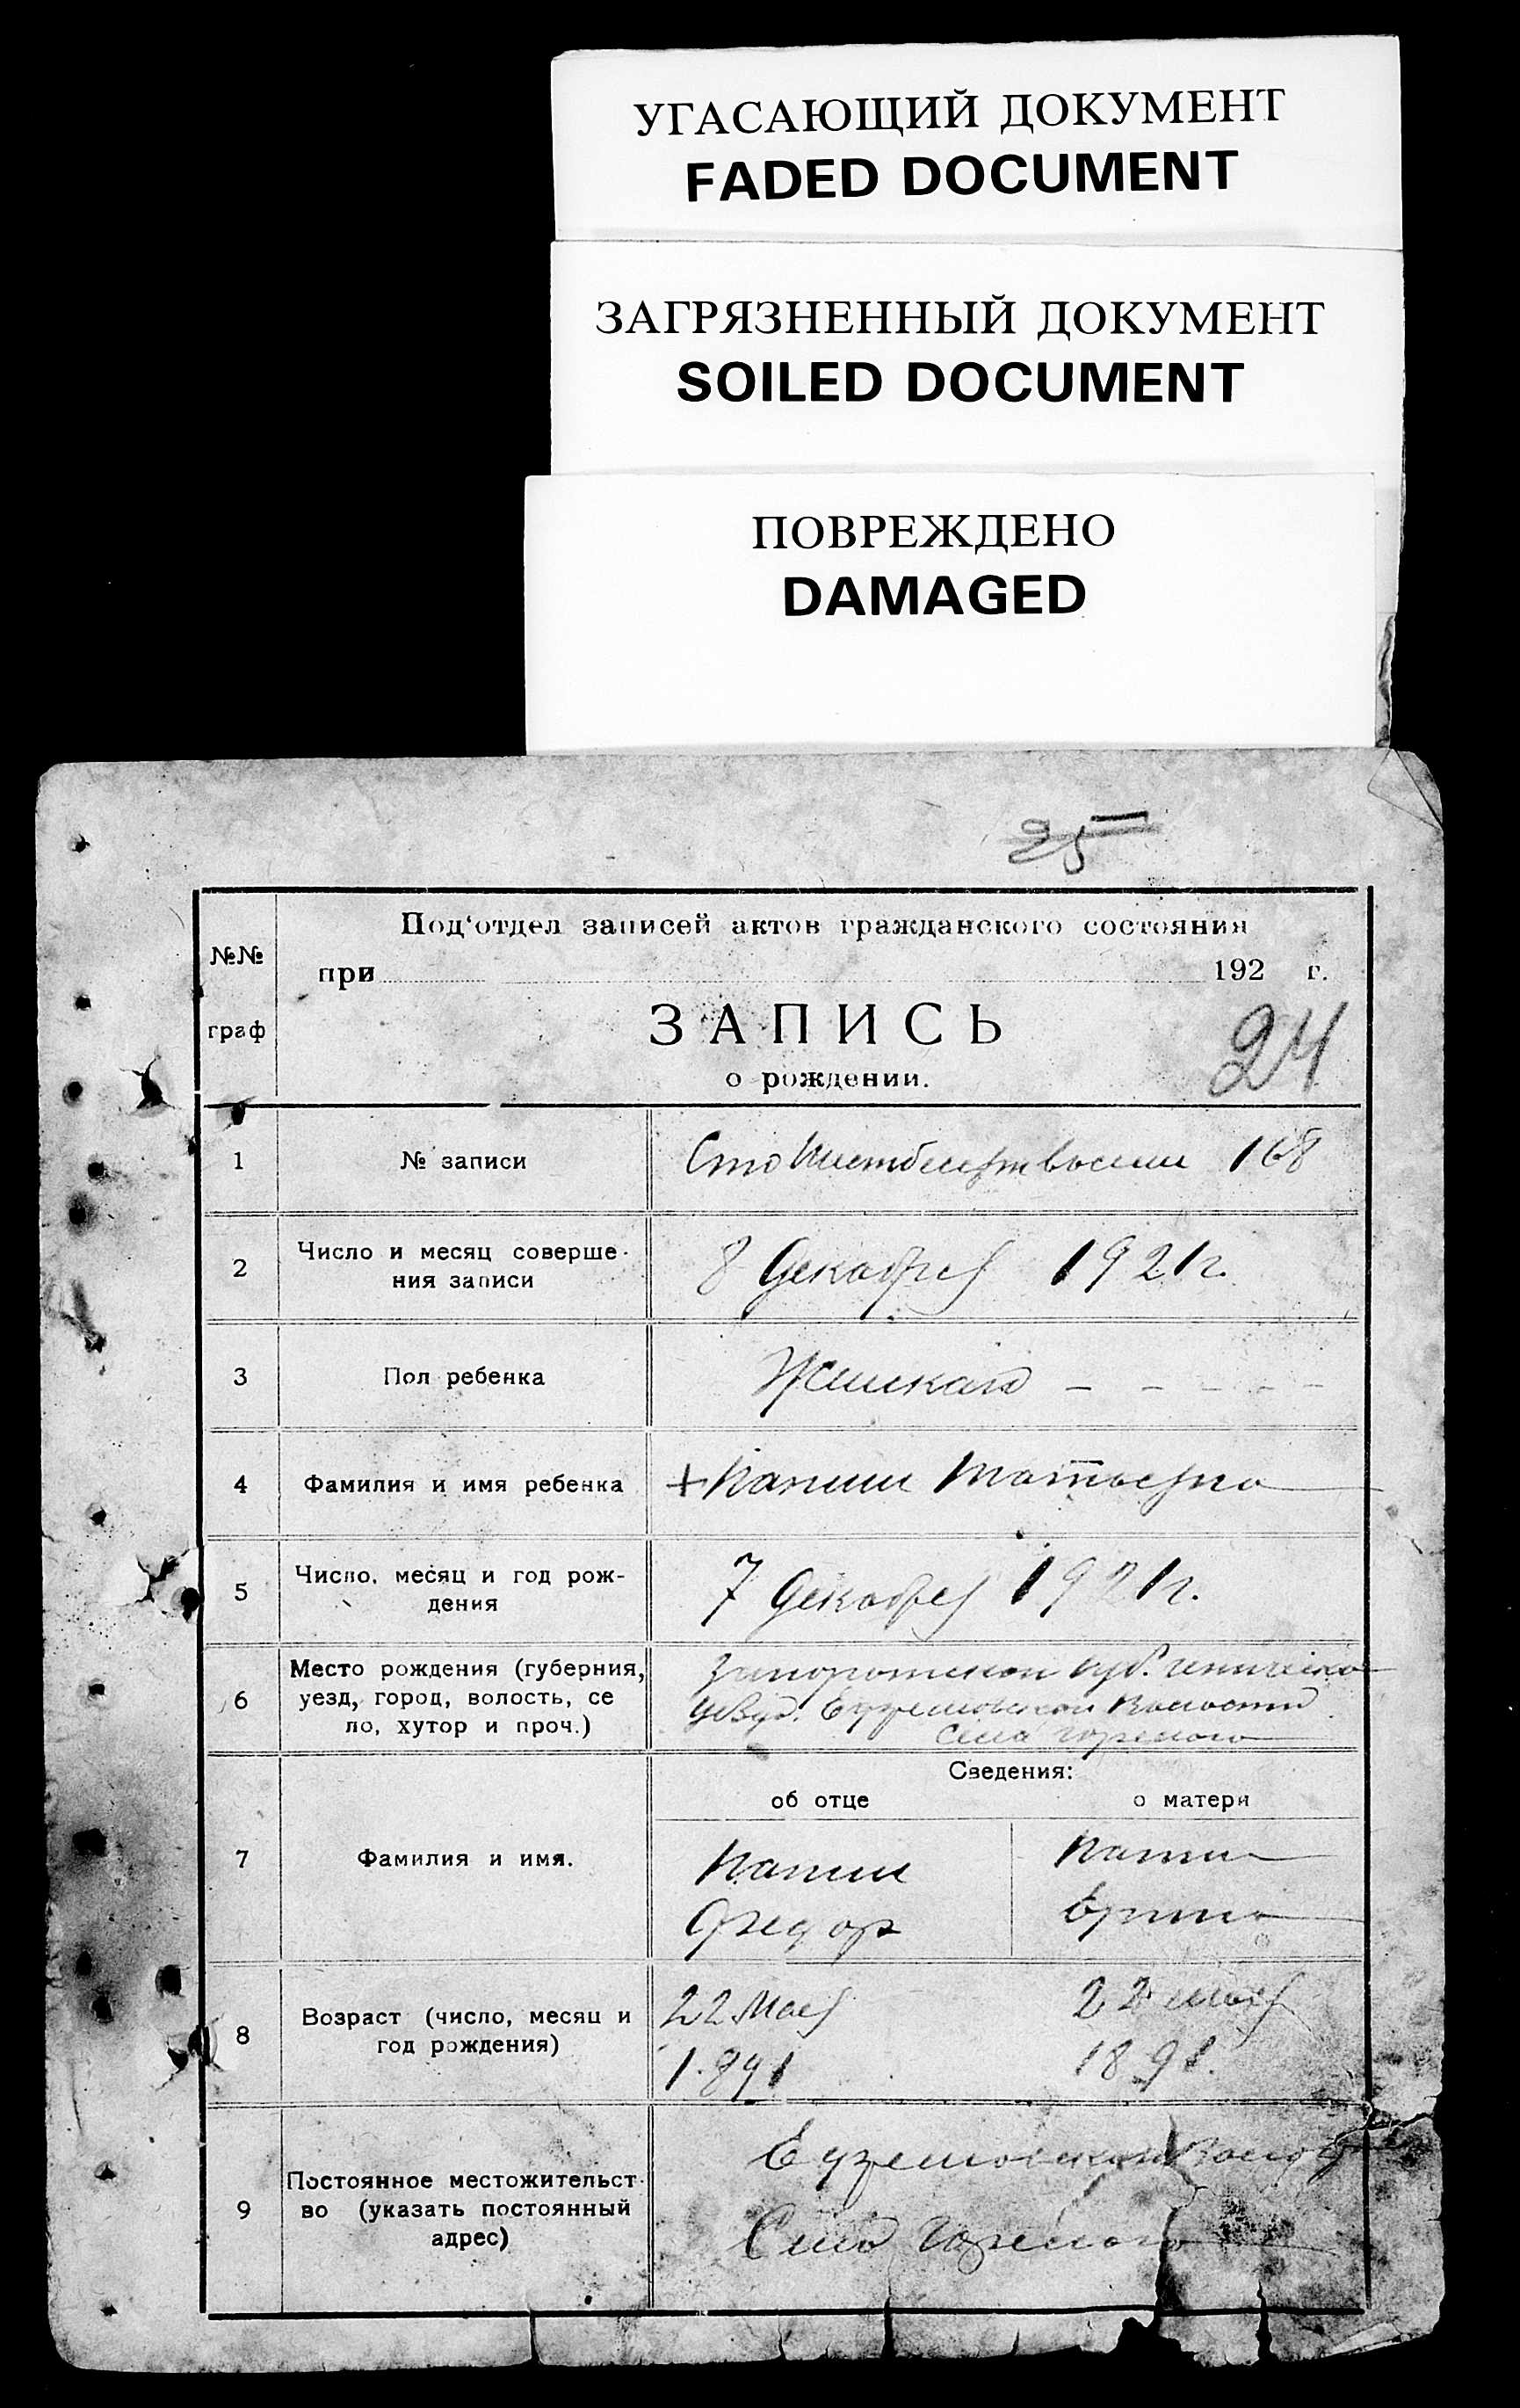 УГАСАЮЩИЙ ДОКУМЕНТ
FADED DOCUMENT
ЗАГРЯЗНЕННЫЙ ДОКУМЕНТ
SOILED DOCUMENT
ПОВРЕЖДЕНО
DAMAGED
25
№№
граф
Под‘отдел записей актов гражданского состояния
при 192 г.
ЗАПИСЬ
о рождении.
24
1 № записи Сто Шестьдесят восемь 168
2 Число и месяц соверше-
ния записи 8 Декабря 1921г.
3 Пол ребенка Женскаго - - - - -
4 Фамилия и имя ребенка + Татьяна
5 Число, месяц и год рож-
дения 7 Декабря 1921г.
6 Место рождения (губерния,
уезд, город, волость, се
ло, хутор и проч.)
Запорожской губ.
Волости
Села
Сведения:
об отце о матери
7 Фамилия и имя.
Федор
8 Возраст (число, месяц и
год рождения)
22 Мая 22 мая
1891 1891.
9 Постоянное местожительст-
во (указать постоянный
адрес)
Село